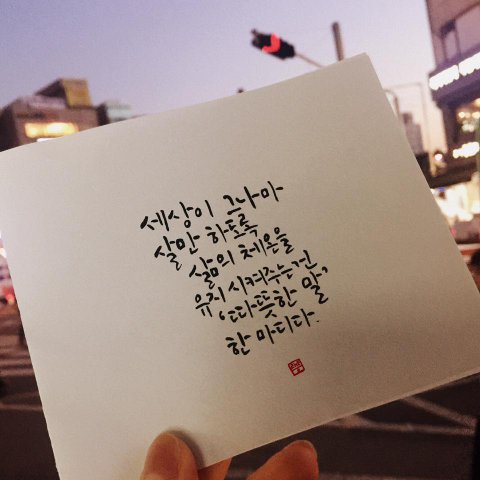 세상이 그나마
살만 하도록
삶의 체온을
유지 시켜주는건
'따뜻한 말'
한 마디다.